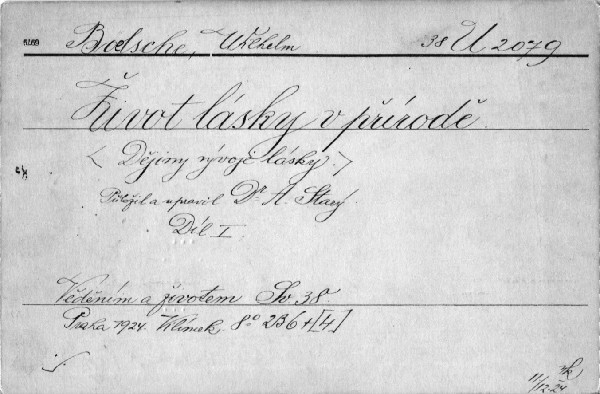 Boelsche, Wilhelm 38 U 2079
Život lásky v přírodě.
< Dějiny vývoje lásky. >
Přeložil a upravil Dr. A. Starý.
Díl I.
Věděním a životem Sv. 38.
Praha 1924. Klimek. 8° 236 + [4]
11/12.24